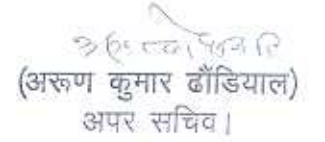 (अरूण कुमार ढौंडियाल)
अपर सचिव।